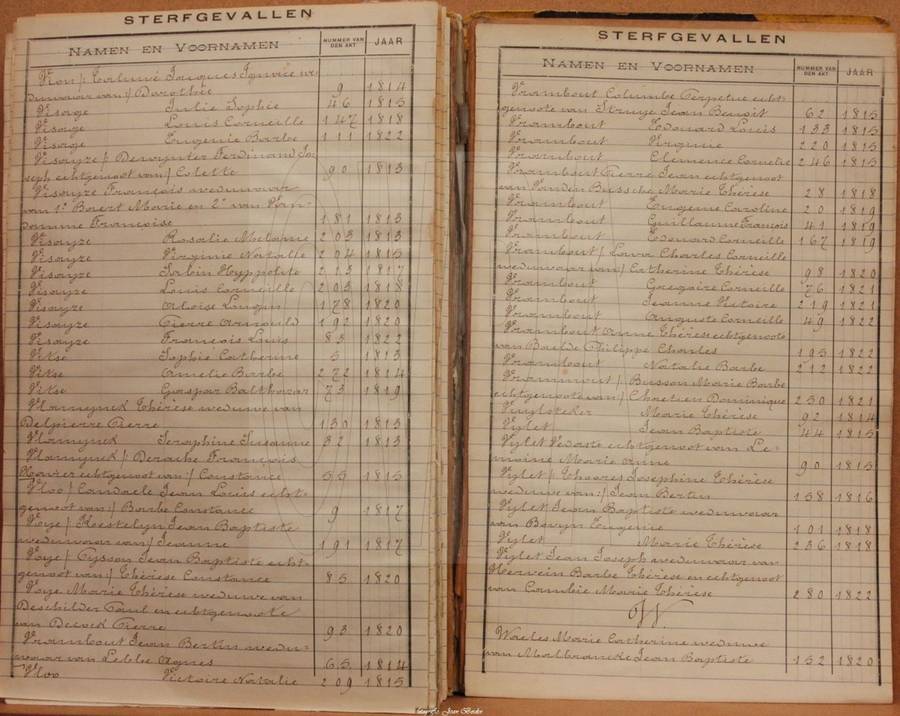 STERFGEVALLEN
NAMEN EN VOORNAMEN NUMMER VAN DEN AKT JAAR
Vion / Calumé Jacques Ignace we-
duwaar van:/ Dorothée 9 1814
Visage Julie Sophie 46 1815
Visage Louis Corneille 147 1818
Visage Eugénie Barbe 111 1822
Visayze / Deruynter Ferdinand Jo-
seph echtgenoot van:/ Colette 90 1813
Visayze François weduwaar
van 1° Baert Marie en 2° van Van-
Damme Françoise 181 1813
Visayze Rosalie Melanie 203 1813
Visayze Virginie Natalie 204 1815
Visayze Sabin Hyppolite 213 1817
Visayze Louis Corneille 203 1818
Visayze Aloise 178 1820
Visayze Pierre Arnould 192 1820
Visayze François Louis 83 1822
Vitse Sophie Catherine 5 1813
Vitse Amelie Barbe 272 1814
Vitse Gaspar Balthazar 73 1819
Vlamynck Thérèse weduwe van
Delpierre Pierre 130 1813
Vlamynck Seraphine Susanne 32 1813
Vlamynck / Derache François
Xavier echtgenoot van:/ Constance 55 1815
Vloo / Candaele Jean Louis echt-
genoot van:/ Barbe Constance 9 1817
Voye / Hostelyn Jean Baptiste
weduwaar van:/ Jeanne 191 1817
Voye / Cysson Jean Baptiste echt-
genoot van:/ Thérèse Constance 85 1820
Voye Marie Thérèse weduwe van
Deschilder Paul en echtgenoote
van Decock Pierre 93 1820
Vrambout Jean Bertin wedu-
waar van Lebbe Agnes 65 1814
Vloo Victoire Natalie 209 1815
STERFGEVALLEN
NAMEN EN VOORNAMEN NUMMER VAN DEN AKT JAAR
Vrambout Columbe Perpetue echt-
genoote van Struye Jean Benoit 62 1815
Vrambout Edouard Louis 133 1815
Vrambout Virginie 220 1815
Vrambout Clemence Cornelie 246 1815
Vrambout Pierre Jean echtgenoot
van Vanden Bussche Marie Thérèse 28 1818
Vrambout Eugenie Caroline 20 1819
Vrambout Guillaume François 41 1819
Vrambout Edouard Corneille 167 1819
Vrambout / Lava Charles Corneille
weduwaar van:/ Catherine Thérèse 98 1820
Vrambout Gregoire Corneille 76 1821
Vrambout Jeanne 219 1821
Vrambout Auguste Corneille 49 1822
Vrambout Anne Thérèse echtgenoote
van Baelde Philippe Charles 195 1822
Vrambout Natalie Barbe 212 1822
Vrammout / Busson Marie Barbe
echtgenoote van:/ Chretien Dominique 230 1821
Vuylsteker Marie Thérèse 92 1814
Vylet Jean Baptiste 44 1815
Vylet Vedaste echtgenoot van Le-
moine Marie Anne 90 1815
Vylet / Thoores Josephine Thérèse
weduwe van:/ Jean Bertin 158 1816
Vylet Jean Baptiste weduwaar
van Bovyn Eugenie 101 1818
Vylet Marie Thérèse 236 1818
Vylet Jean Joseph weduwaar van
Hervein Barbe Thérèse en echtgenoot
van Cambie Marie Thérèse 280 1822
W
Waeles Marie Catherine weduwe
van Malbrancke Jean Baptiste 152 1820